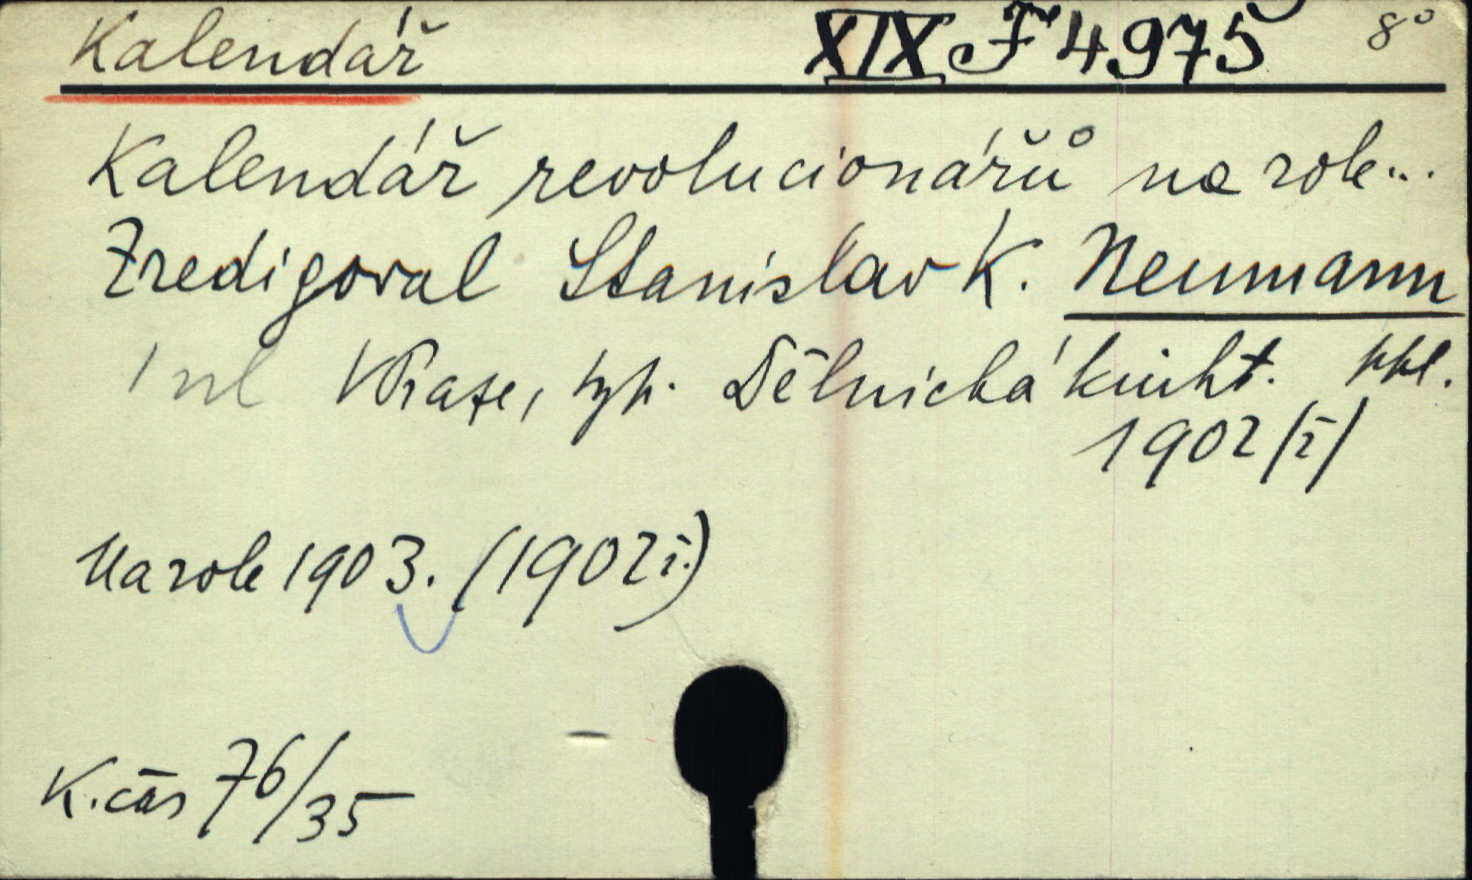 Kalendář XIX F 4975 8°
Kalendář revolucionářů na rok...
Zredigoval Stanislav K. Neumann
V Praze, typ. Dělnická kniht. nkl.
1902 /I/
Na rok 1903. (1902 I.)
K. čas 76/35